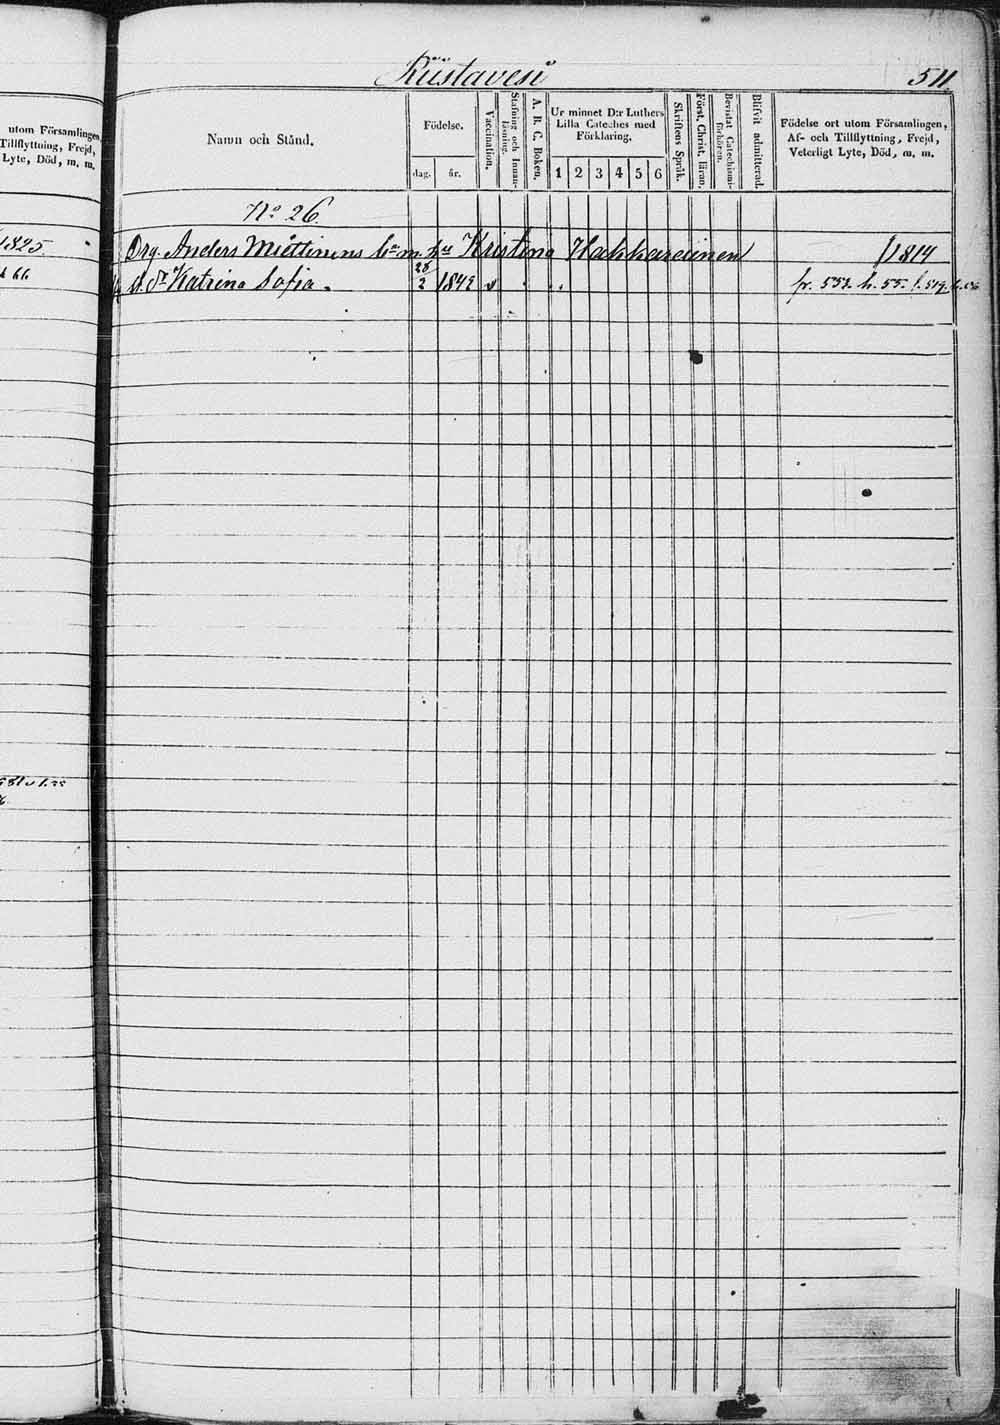 Riistavesi
511.
utom Församlingen,
Tillflyttning, Frejd,
Lyte, Död, m. m.
1825.
Namn och Stånd.
Födelse.
dag.
år.
Vaccination.
Stafning och Innan-
läsning.
A. B. C. Boken.
Ur minnet D:r Luthers
Lilla Cateches med
Förklaring.
1 2 3 4 5 6
Skriftens Språk.
Först. Christ. läran.
Bevistat Catechismi-
förhören.
Blifvit admitterad.
Födelse ort utom Församlingen,
Af- och Tillflyttning, Frejd,
Veterligt Lyte, Död, m. m.
No 26.
Drg. Anders Miettinens hu Kristina Hakkarainen 1814
d. Dr Katrina Sofia. 28/2 1842 fr. 553. h. 55.